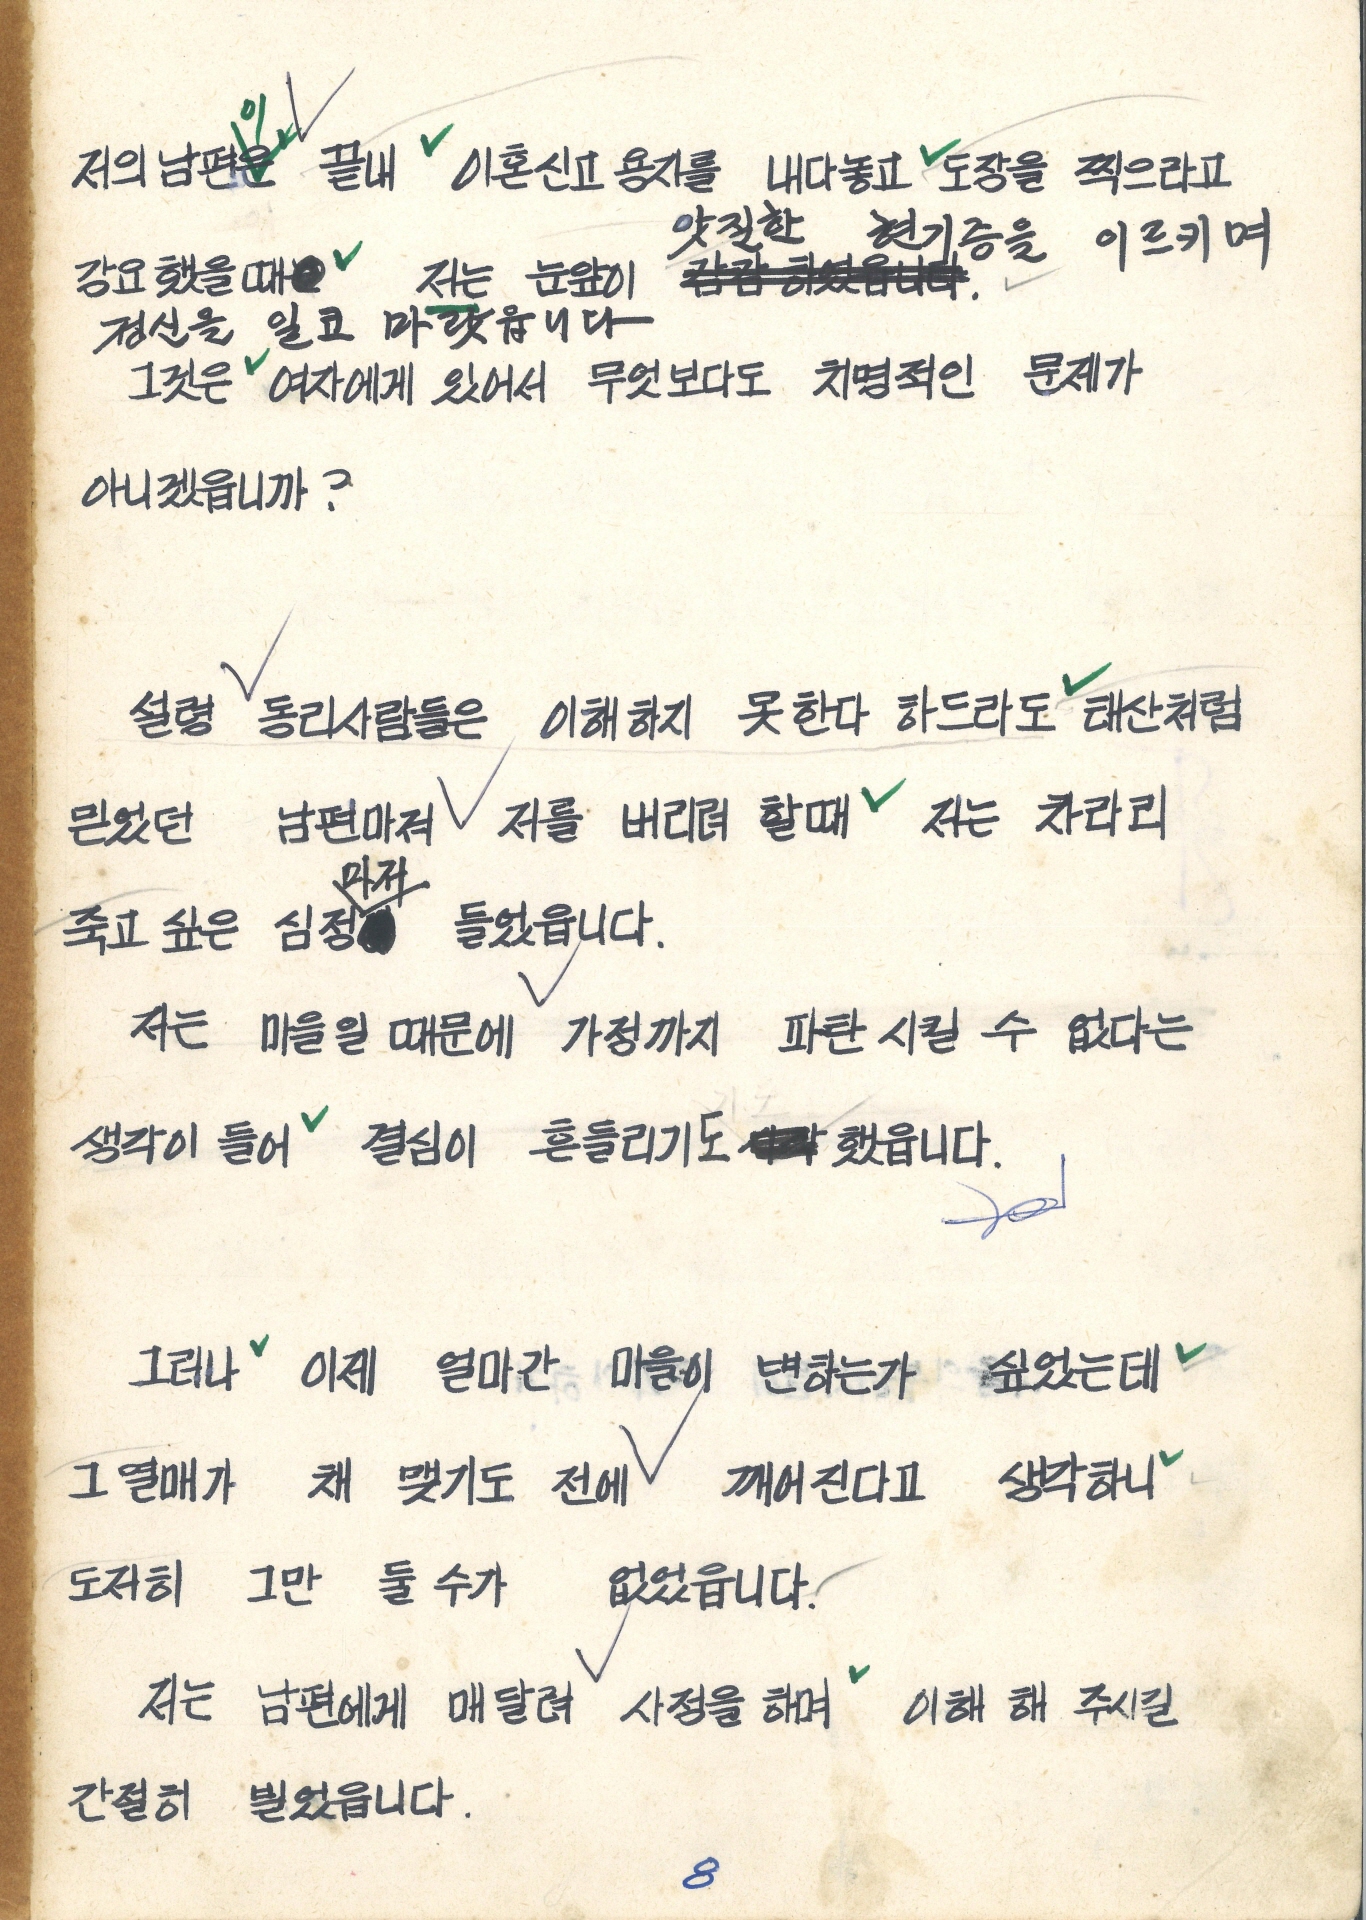 이
저의 남편은 끝내 이혼신고 용지를 내다놓고 도장을 찍으라고
앗질한 현기증을 이르키며
강요했을때 저는 눈앞이 캄캄하였읍니다.
정신을 일코 마랏읍니다
그것은 여자에게 있어서 무엇보다도 치명적인 문제가
아니겠읍니까?
설령 동리사람들은 이해하지 못한다 하드라도 태산처럼
믿었던 남편마져 저를 버리려 할때 저는 차라리
마저
죽고 싶은 심정 들었읍니다.
저는 마을일 때문에 가정까지 파탄 시킬 수 없다는
생각이 들어 결심이 흔들리기도 했읍니다.
그러나 이제 얼마간 마을이 변하는가 싶었는데
그 열매가 채 맺기도 전에 깨어진다고 생각하니
도저히 그만 둘 수가 없었읍니다.
저는 남편에게 매달려 사정을 하며 이해 해 주시길
간절히 빌었읍니다.
8